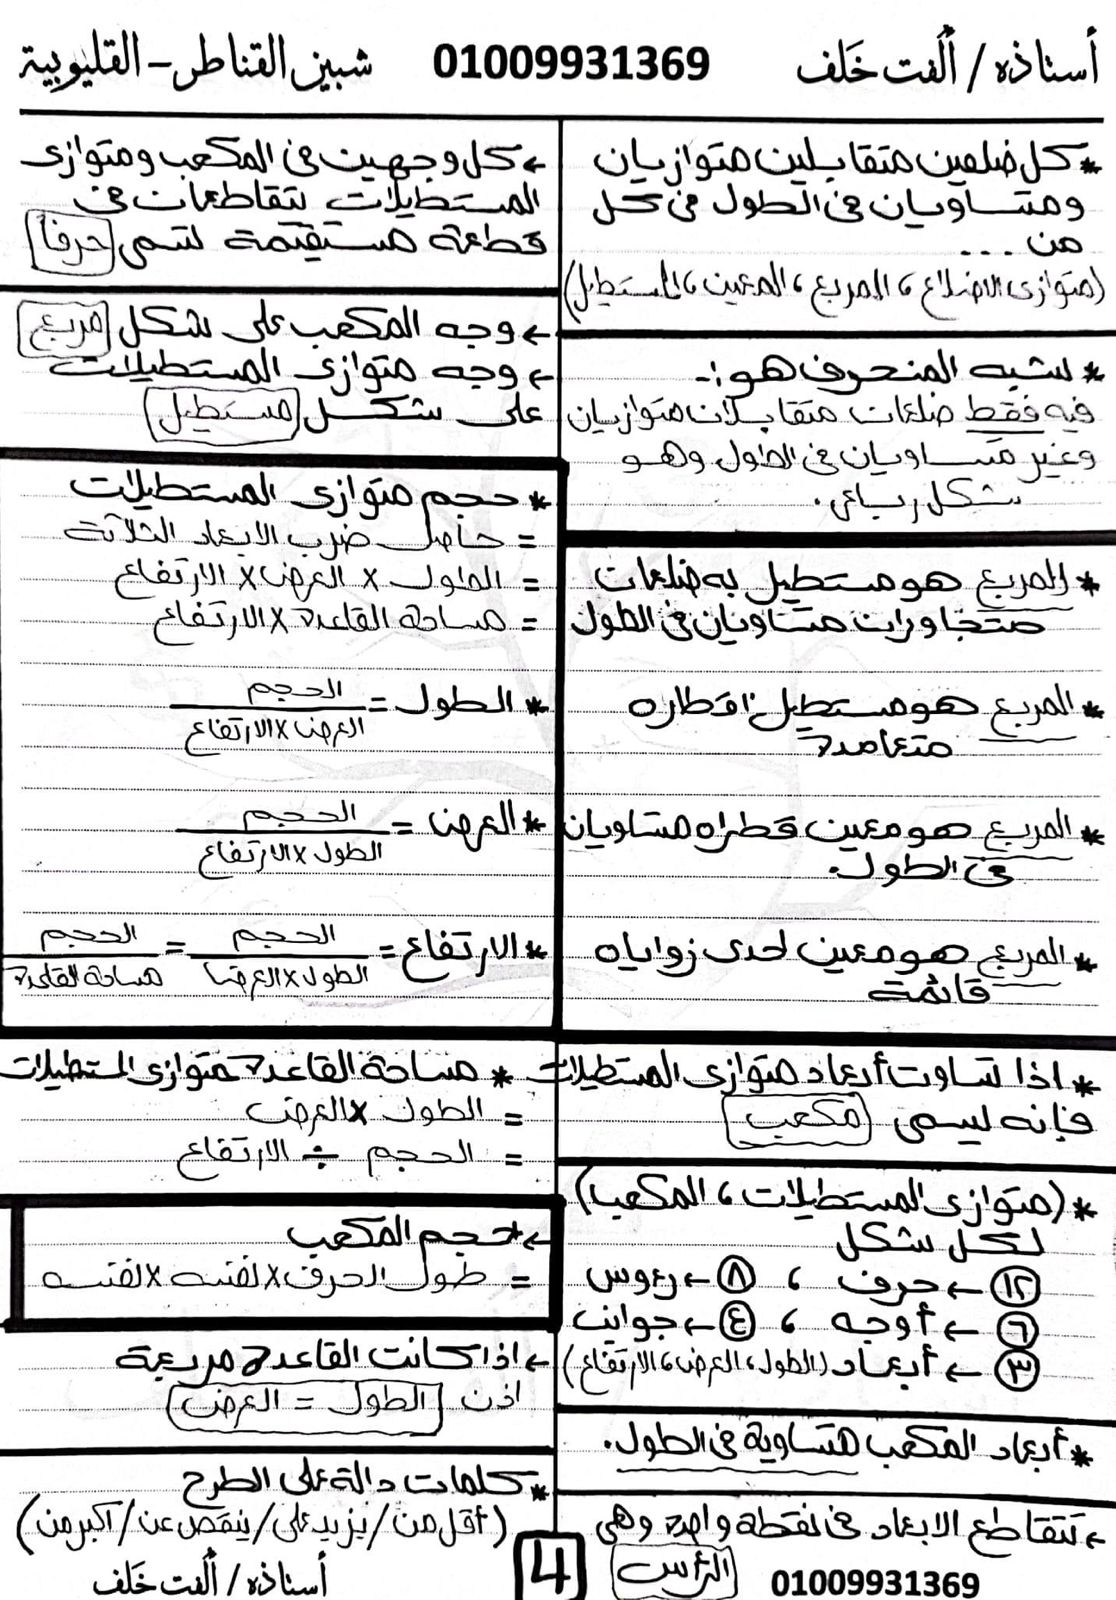 أستاذه / ألفت خلف 01009931369 شبين القناطر - القليوبية
* كل ضلعين متقابلين متوازيان
ومتساويان فى الطول فى كل
من ...
(متوازى الاضلاع ، المربع ، المعين ، المستطيل)
* شبه المنحرف هو :-
فيه فقط ضلعان متقابلان متوازيان
وغير متساويان فى الطول وهو
شكل رباعى .
* المربع هو مستطيل به ضلعان
متجاوران متساويان فى الطول
* المربع هو مستطيل اقطاره
متعامدة
* المربع هو معين قطراه متساويان
فى الطول .
* المربع هو معين احدى زواياه
قائمة
* اذا تساوت أبعاد متوازى المستطيلات
فإنه يسمى مكعب
* (متوازى المستطيلات ، المكعب)
لكل شكل
١٢ ← حرف ، ٨ ← رءوس
٦ ← أوجه ، ٤ ← جوانب
٣ ← أبعاد (الطول ، العرض ، الارتفاع)
* أبعاد المكعب متساوية فى الطول .
← تتقاطع الابعاد فى نقطة واحدة وهى
الرأس
← كل وجهين فى المكعب ومتوازى
المستطيلات يتقاطعان فى
قطعة مستقيمة تسمى حرفاً
← وجه المكعب على شكل مربع
← وجه متوازى المستطيلات
على شكل مستطيل
* حجم متوازى المستطيلات
= حاصل ضرب الابعاد الثلاثة
= الطول × العرض × الارتفاع
= مساحة القاعدة × الارتفاع
* الطول = الحجم
العرض × الارتفاع
* العرض = الحجم
الطول × الارتفاع
* الارتفاع = الحجم = الحجم
الطول × العرض مساحة القاعدة
* مساحة القاعدة متوازى المستطيلات
= الطول × العرض
= الحجم ÷ الارتفاع
← حجم المكعب
= طول الحرف × نفسه × نفسه
← اذا كانت القاعدة مربعة
اذن الطول = العرض
* كلمات دالة على الطرح
(أقل من / يزيد على / ينقص عن / أكبر من)
أستاذه / ألفت خلف 4 01009931369